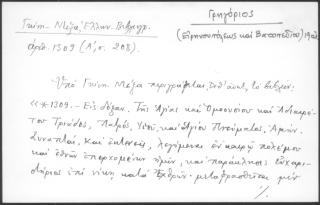 Γκίνη - Μέξα, Ἑλλην. Βιβλιογρ.
ἀριθ. 1309 (Α', σ. 208).
Γρηγόριος
(Εἰρηνουπόλεως καὶ Βατοπεδίου)
Ὑπὸ Γκίνη - Μέξα περιγράφεται, ἔνθ' ἀνωτ., τὸ βιβλίον:
«*1309. - Εἰς δόξαν. Τῆς Ἁγίας καὶ Ὁμοουσίου καὶ Ἀδιαιρέ-
του Τριάδος, Πατρός, Υἱοῦ, καὶ Ἁγίου Πνεύματος. Ἀμήν.
Συναπταί, Καὶ ἐκτενεῖς, λεγόμεναι ἐν καιρῷ πολέμου
καὶ ἐθνῶν ἐπερχομένων ἡμῖν, καὶ παράκλησις εὐχαρι-
στήριος ἐπὶ νίκῃ κατὰ Ἐχθρῶν· μεταφρασθεῖσαι μὲν
·/.